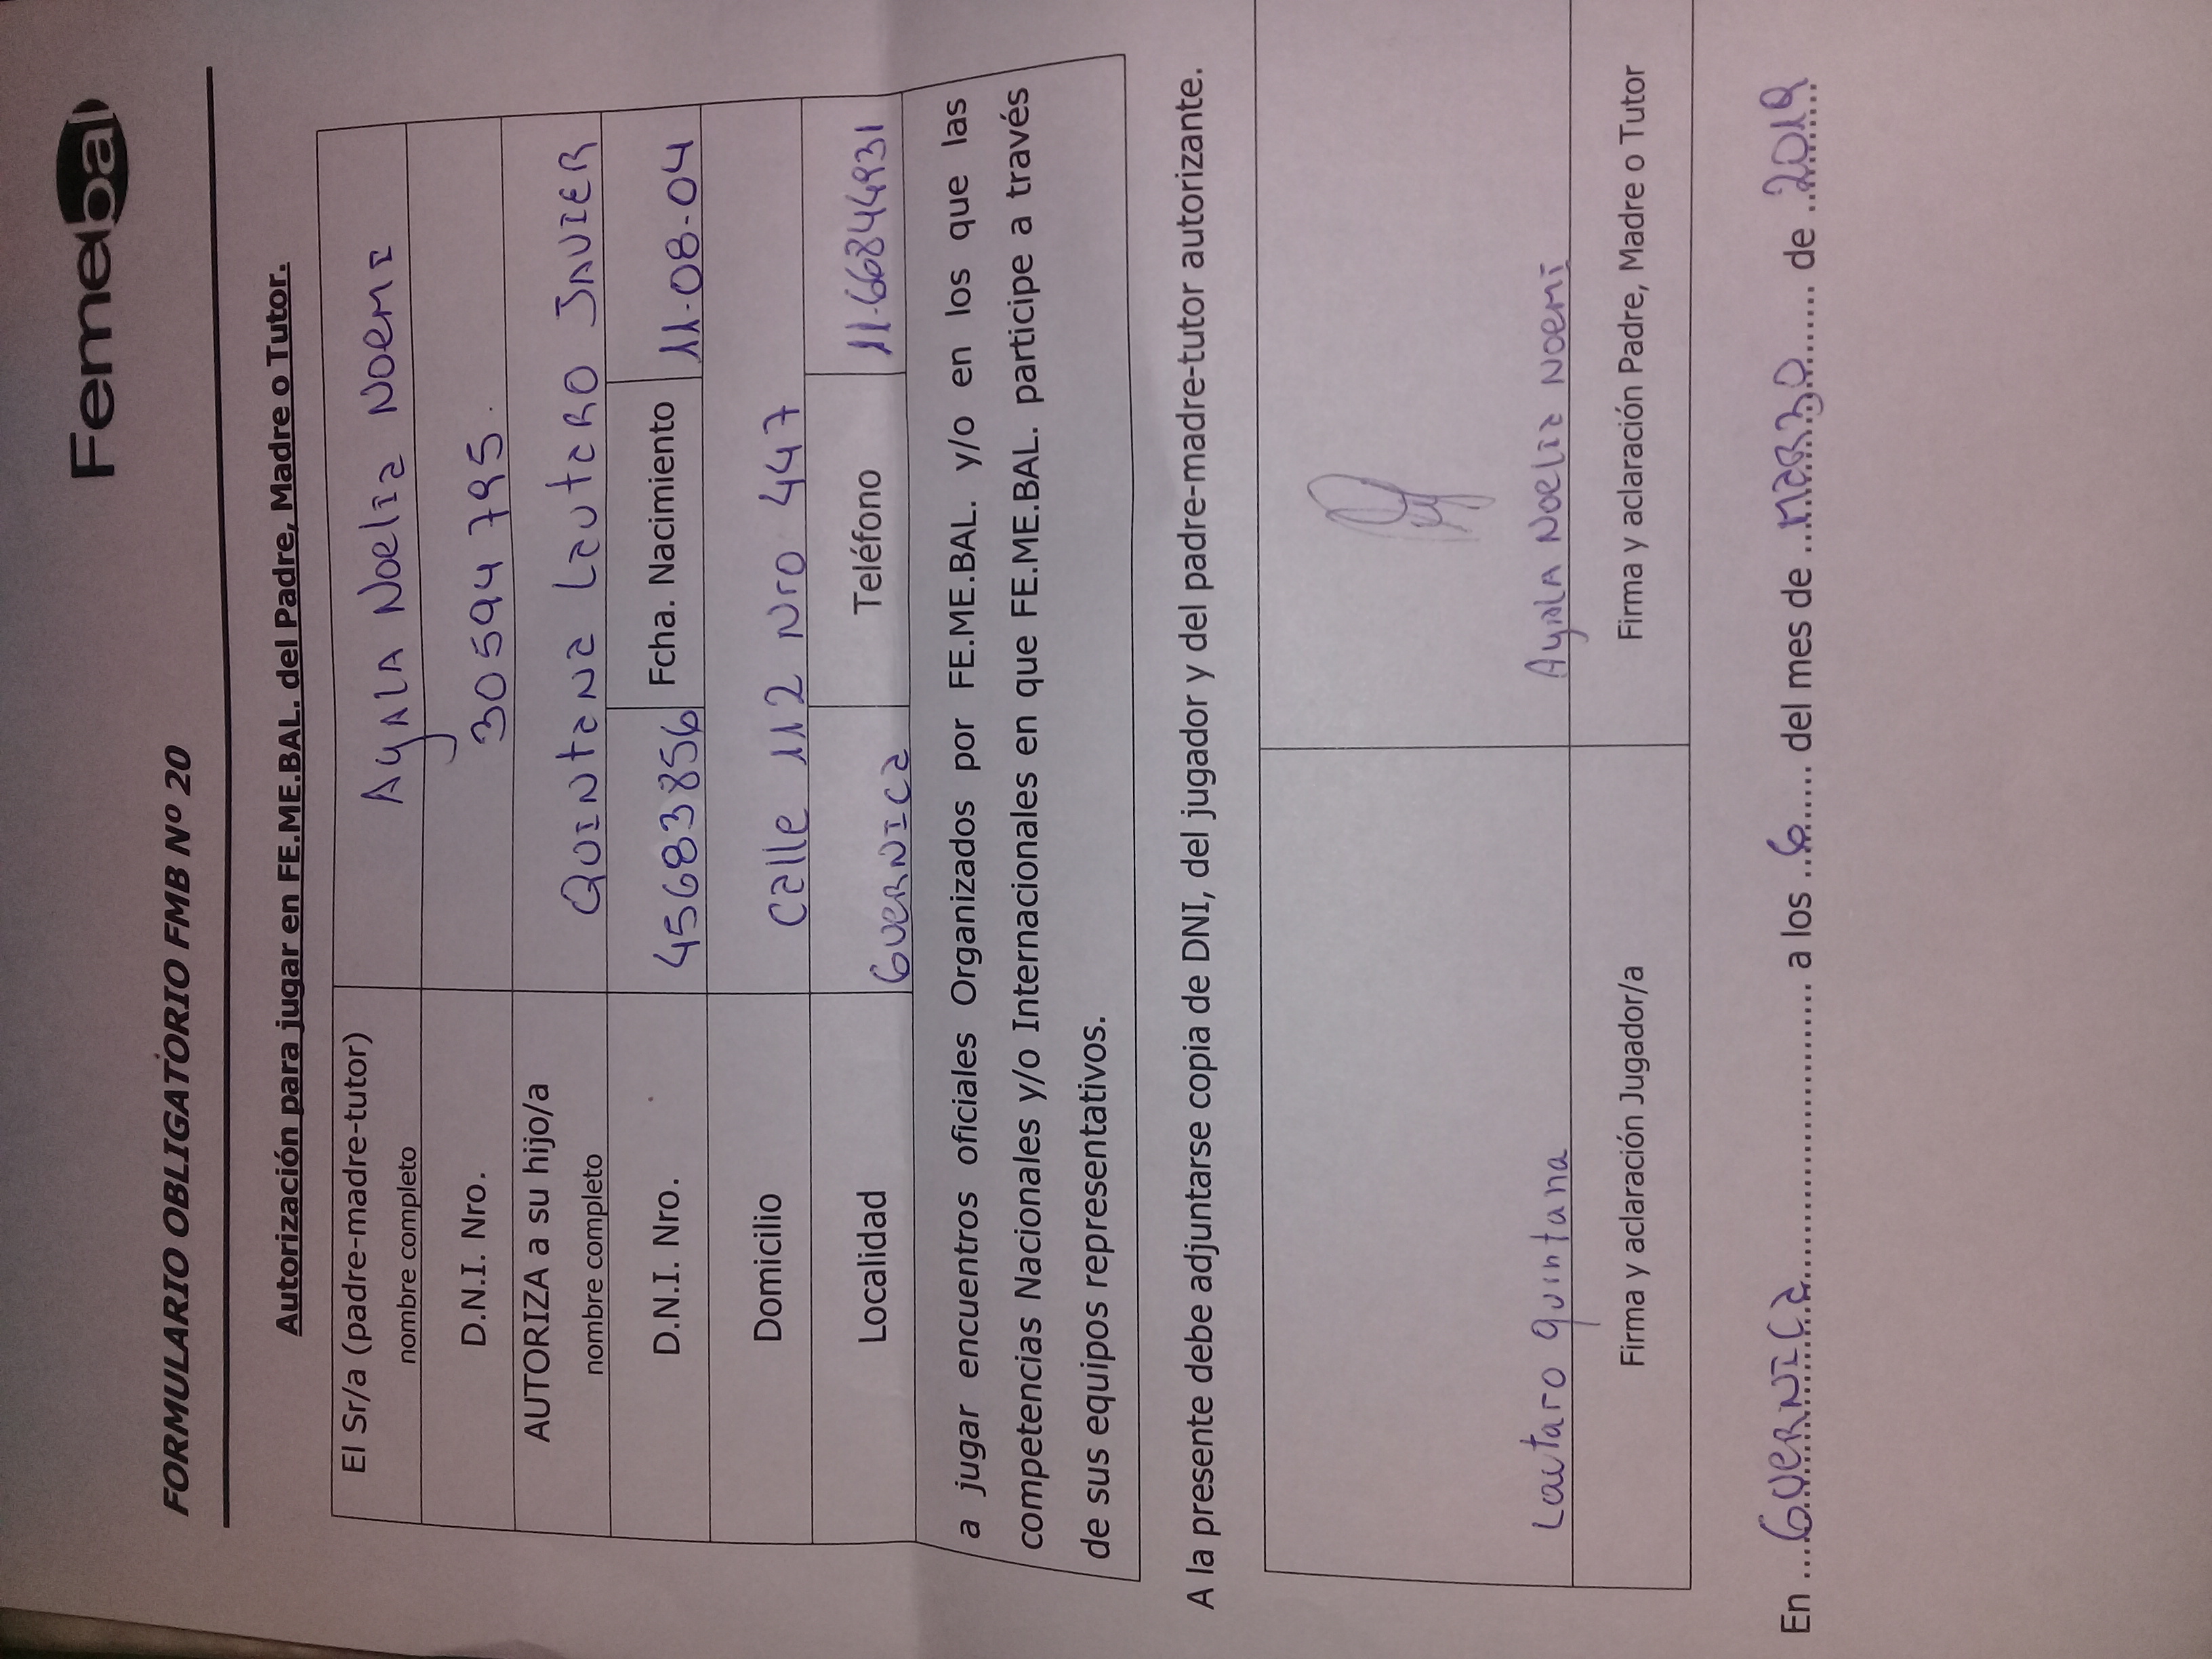 Femebal
FORMULARIO OBLIGATORIO FMB Nº 20
Autorización para jugar en FE.ME.BAL. del Padre, Madre o Tutor.
El Sr/a (padre-madre-tutor)
nombre completo
Ayala Noelia Noemi
D.N.I. Nro.
30594795.
AUTORIZA a su hijo/a
nombre completo
Quintana Lautaro Javier
D.N.I. Nro.
45683856
Fcha. Nacimiento
11-08-04
Domicilio
Calle 112 Nro 447
Localidad
Guernica
Teléfono
11-66844931
a jugar encuentros oficiales Organizados por FE.ME.BAL. y/o en los que las
competencias Nacionales y/o Internacionales en que FE.ME.BAL. participe a través
de sus equipos representativos.
A la presente debe adjuntarse copia de DNI, del jugador y del padre-madre-tutor autorizante.
Lautaro quintana
Ayala Noelia Noemi
Firma y aclaración Jugador/a
Firma y aclaración Padre, Madre o Tutor
En ...Guernica........................ a los ..6..... del mes de ..marzo...... de ..2019